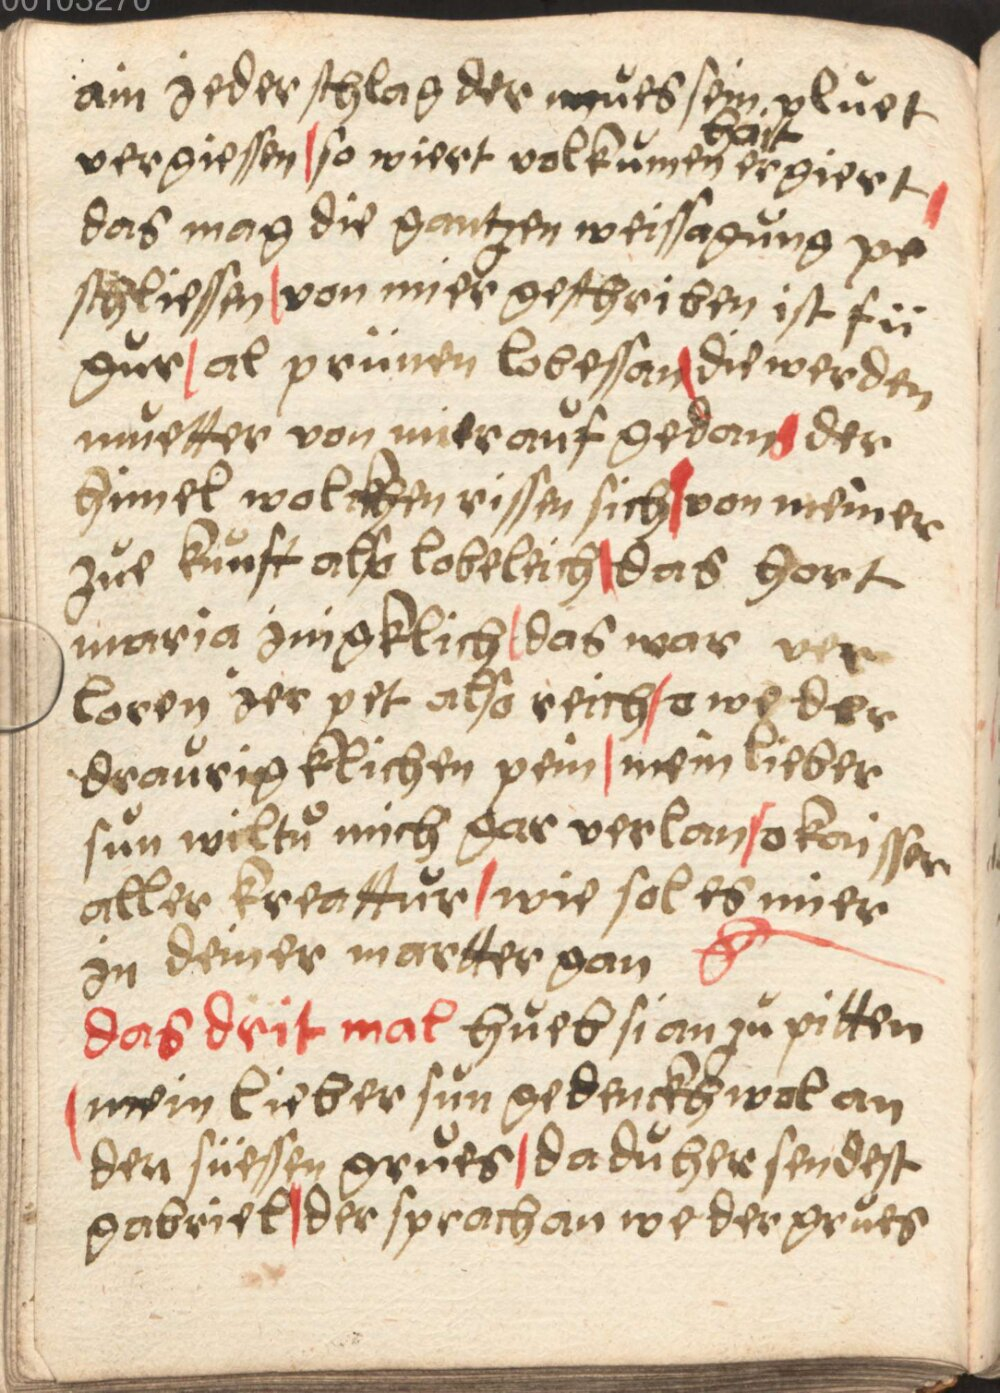 00103270
ain jeder schlag der mues sein pluet
vergiessen | so wiert volkumen hait ergiert |
das mag die gantzen weissagung pe
schliessen | von mier geschriben ist fü
gur | al prünen lobessan | die werden
muetter von mier auf gedan | der
himel wolckhen rissen sich | von meiner
zue kunft also lobeleich | das hort
maria jnigklich | das war ver
loren jer pet also reich | o we der
draurigklichen pein | mein lieber
sun wiltu mich gar verlan | o kaisser
aller kreattur | wie sol es mier
jn deiner martter gan
das drit mal hueb si an zu pitten
| mein lieber sun gedenckh wol an
den süessen grues | da du her sendest
gabriel | der sprach an we der grues